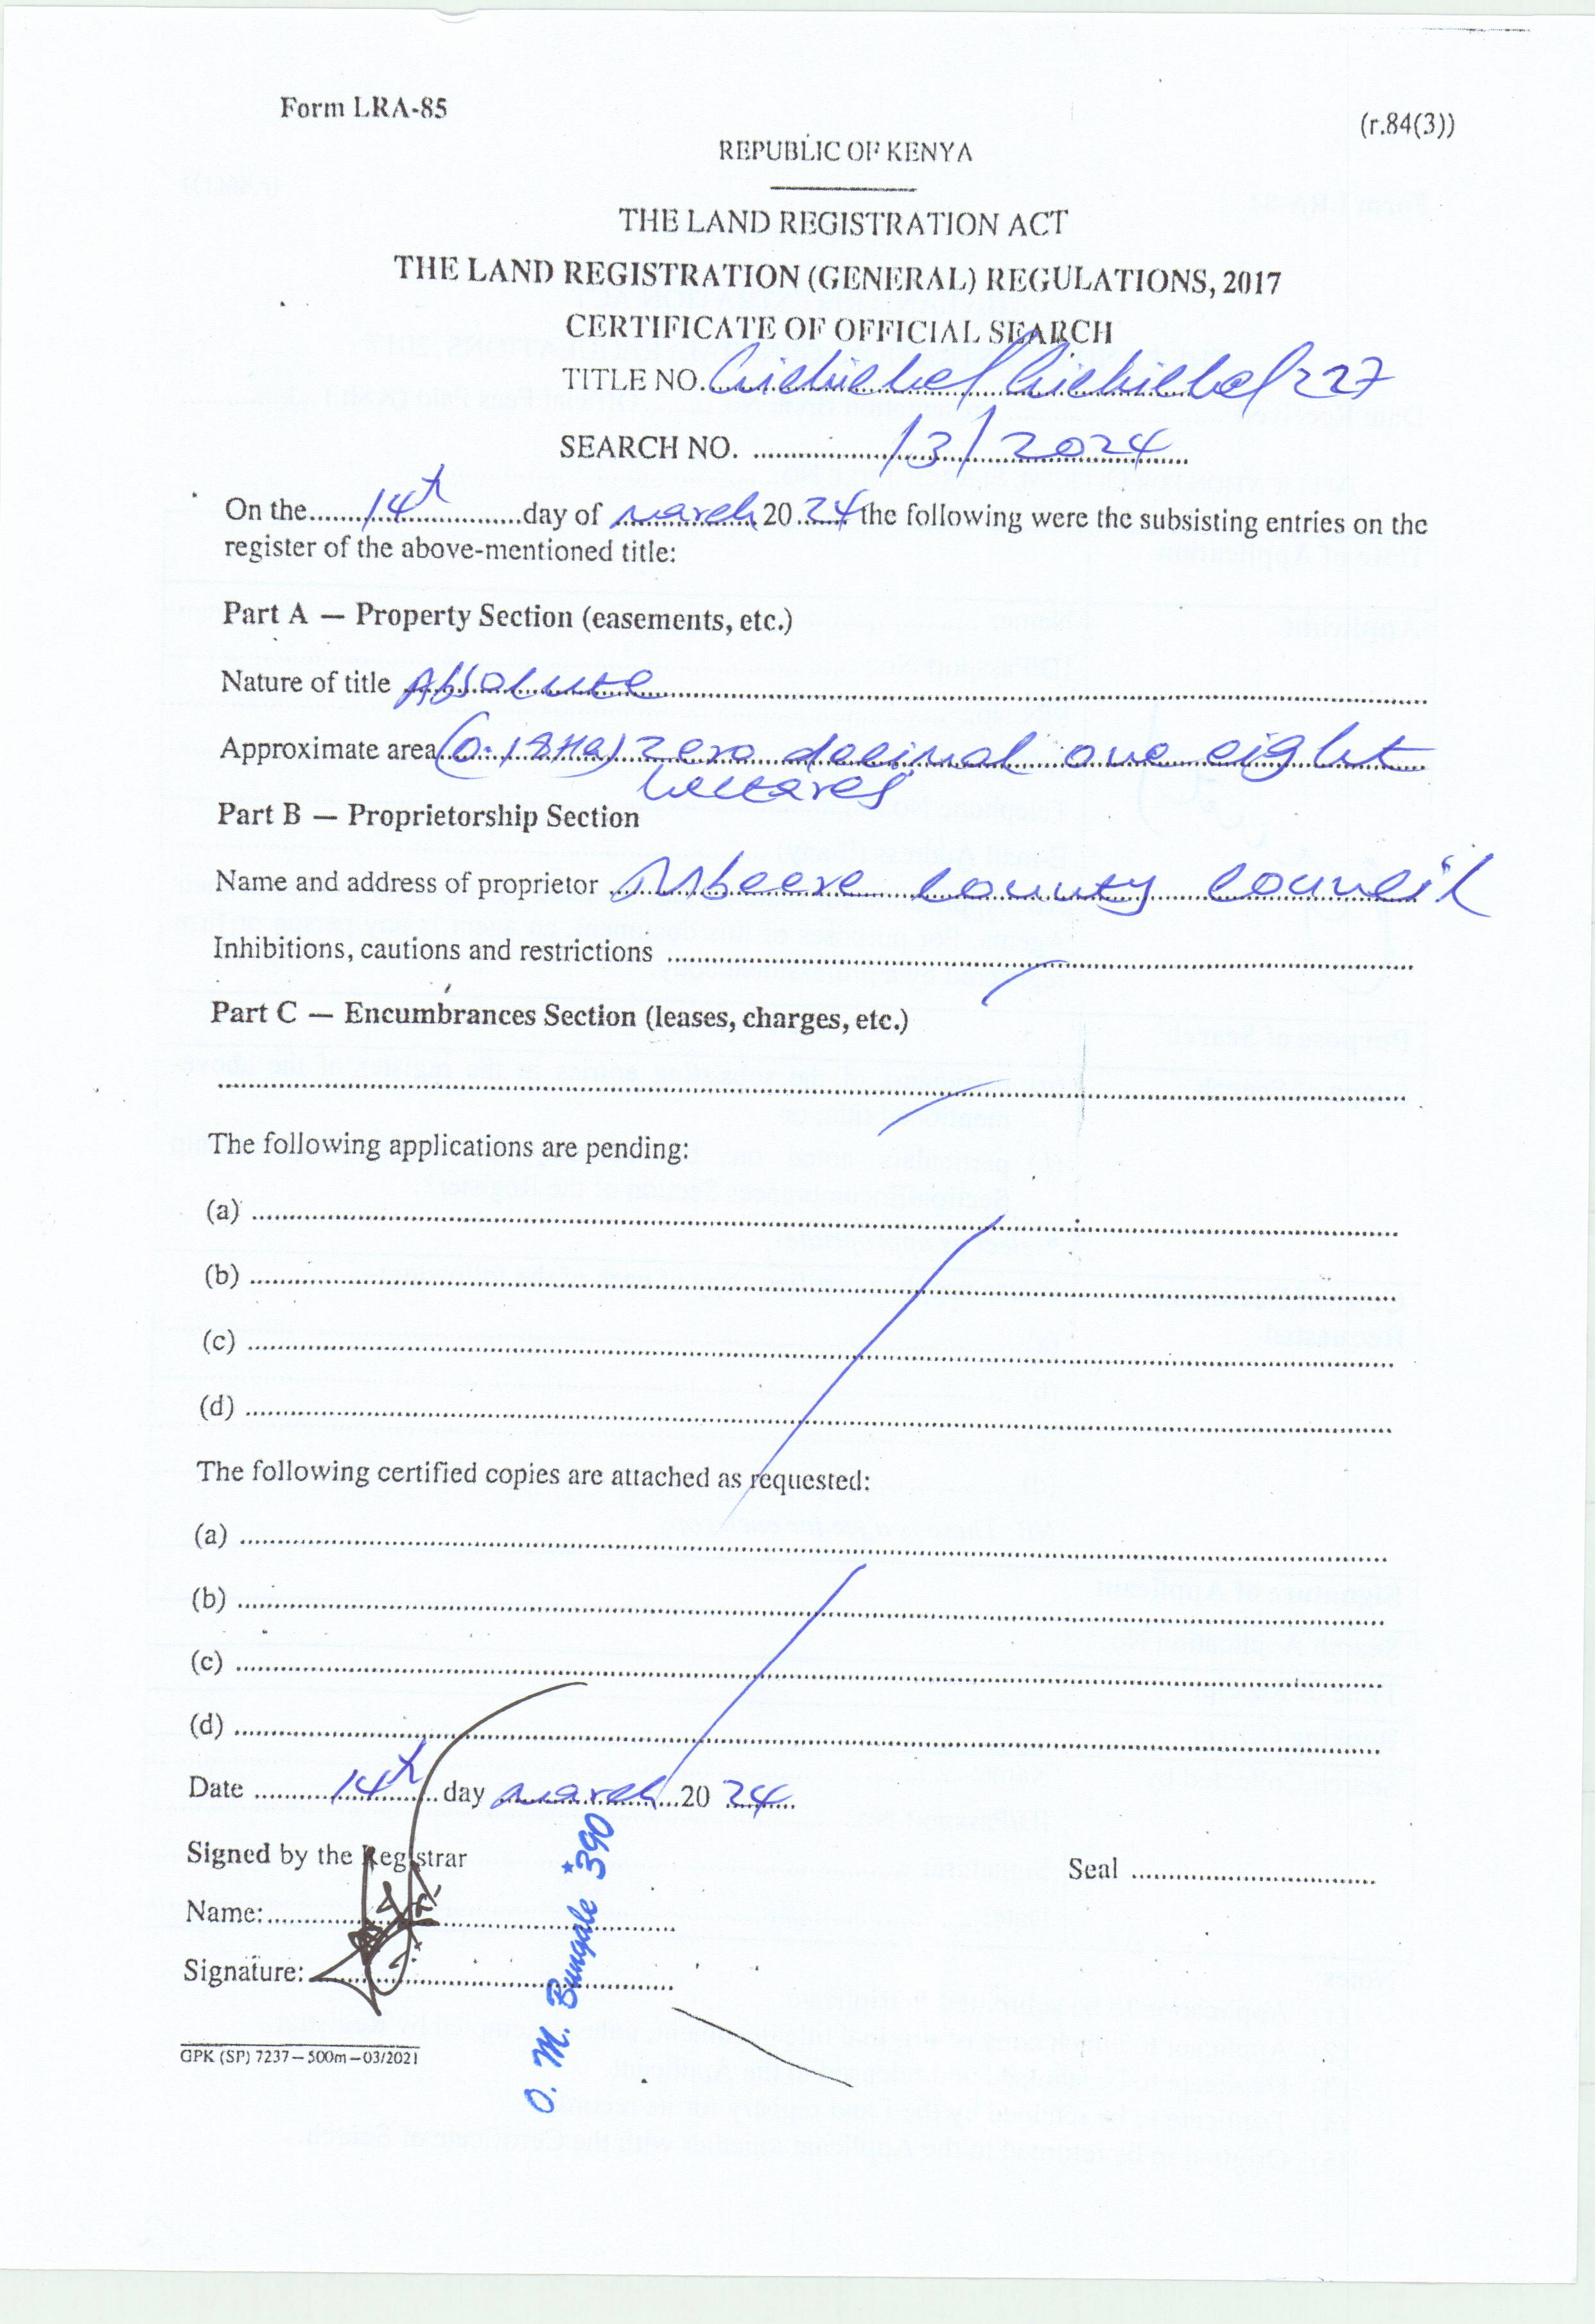 Form LRA-85
(r.84(3))
REPUBLIC OF KENYA
THE LAND REGISTRATION ACT
THE LAND REGISTRATION (GENERAL) REGULATIONS, 2017
CERTIFICATE OF OFFICIAL SEARCH
TITLE NO. 227
SEARCH NO. /3/2024
On the 14th day of march 20 24 the following were the subsisting entries on the
register of the above-mentioned title:
Part A — Property Section (easements, etc.)
Nature of title Absolute
Approximate area (0.18Ha) zero decimal one eight
hectares
Part B — Proprietorship Section
Name and address of proprietor Mbeere county council
Inhibitions, cautions and restrictions
Part C — Encumbrances Section (leases, charges, etc.)
The following applications are pending:
(a)
(b)
(c)
(d)
The following certified copies are attached as requested:
(a)
(b)
(c)
(d)
Date 14th day march 20 24
Signed by the Registrar
Seal
Name:
Signature:
O. M. Bungale *390
GPK (SP) 7237—500m—03/2021